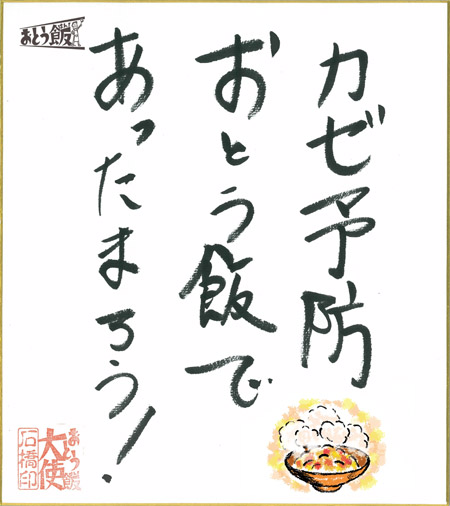 おとう飯
カゼ予防
おとう飯で
あったまろう!
おとう飯
大使
石橋印